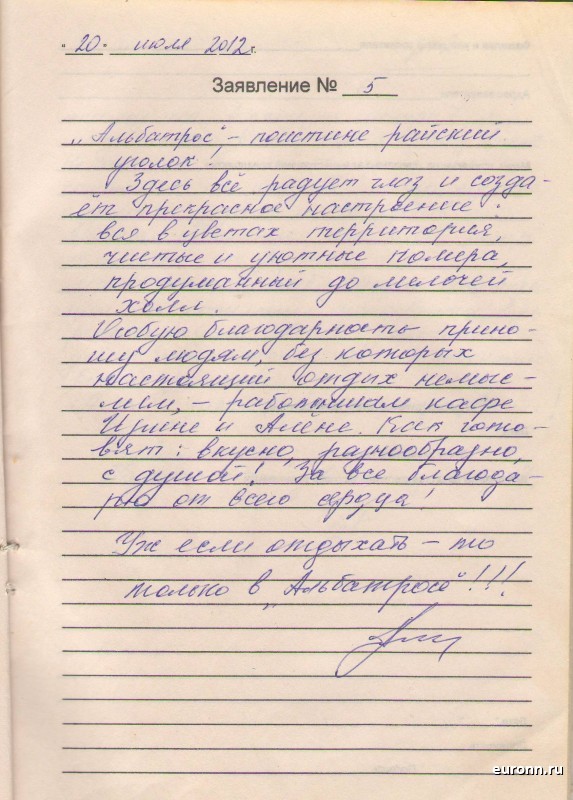 "20" июля 2012г.
Заявление № 5
„Альбатрос" – поистине райский
уголок!
Здесь всё радует глаз и созда-
ёт прекрасное настроение:
вся в цветах территория,
чистые и уютные номера,
продуманный до мелочей
холл.
Особую благодарность прино-
шу людям, без которых
настоящий отдых немыс-
лим, – работникам кафе
Ирине и Алёне. Как гото-
вят: вкусно, разнообразно,
с душой! За все благода-
рю от всего сердца!
Уж если отдыхать – то
только в „Альбатросе"!!!
euronn.ru